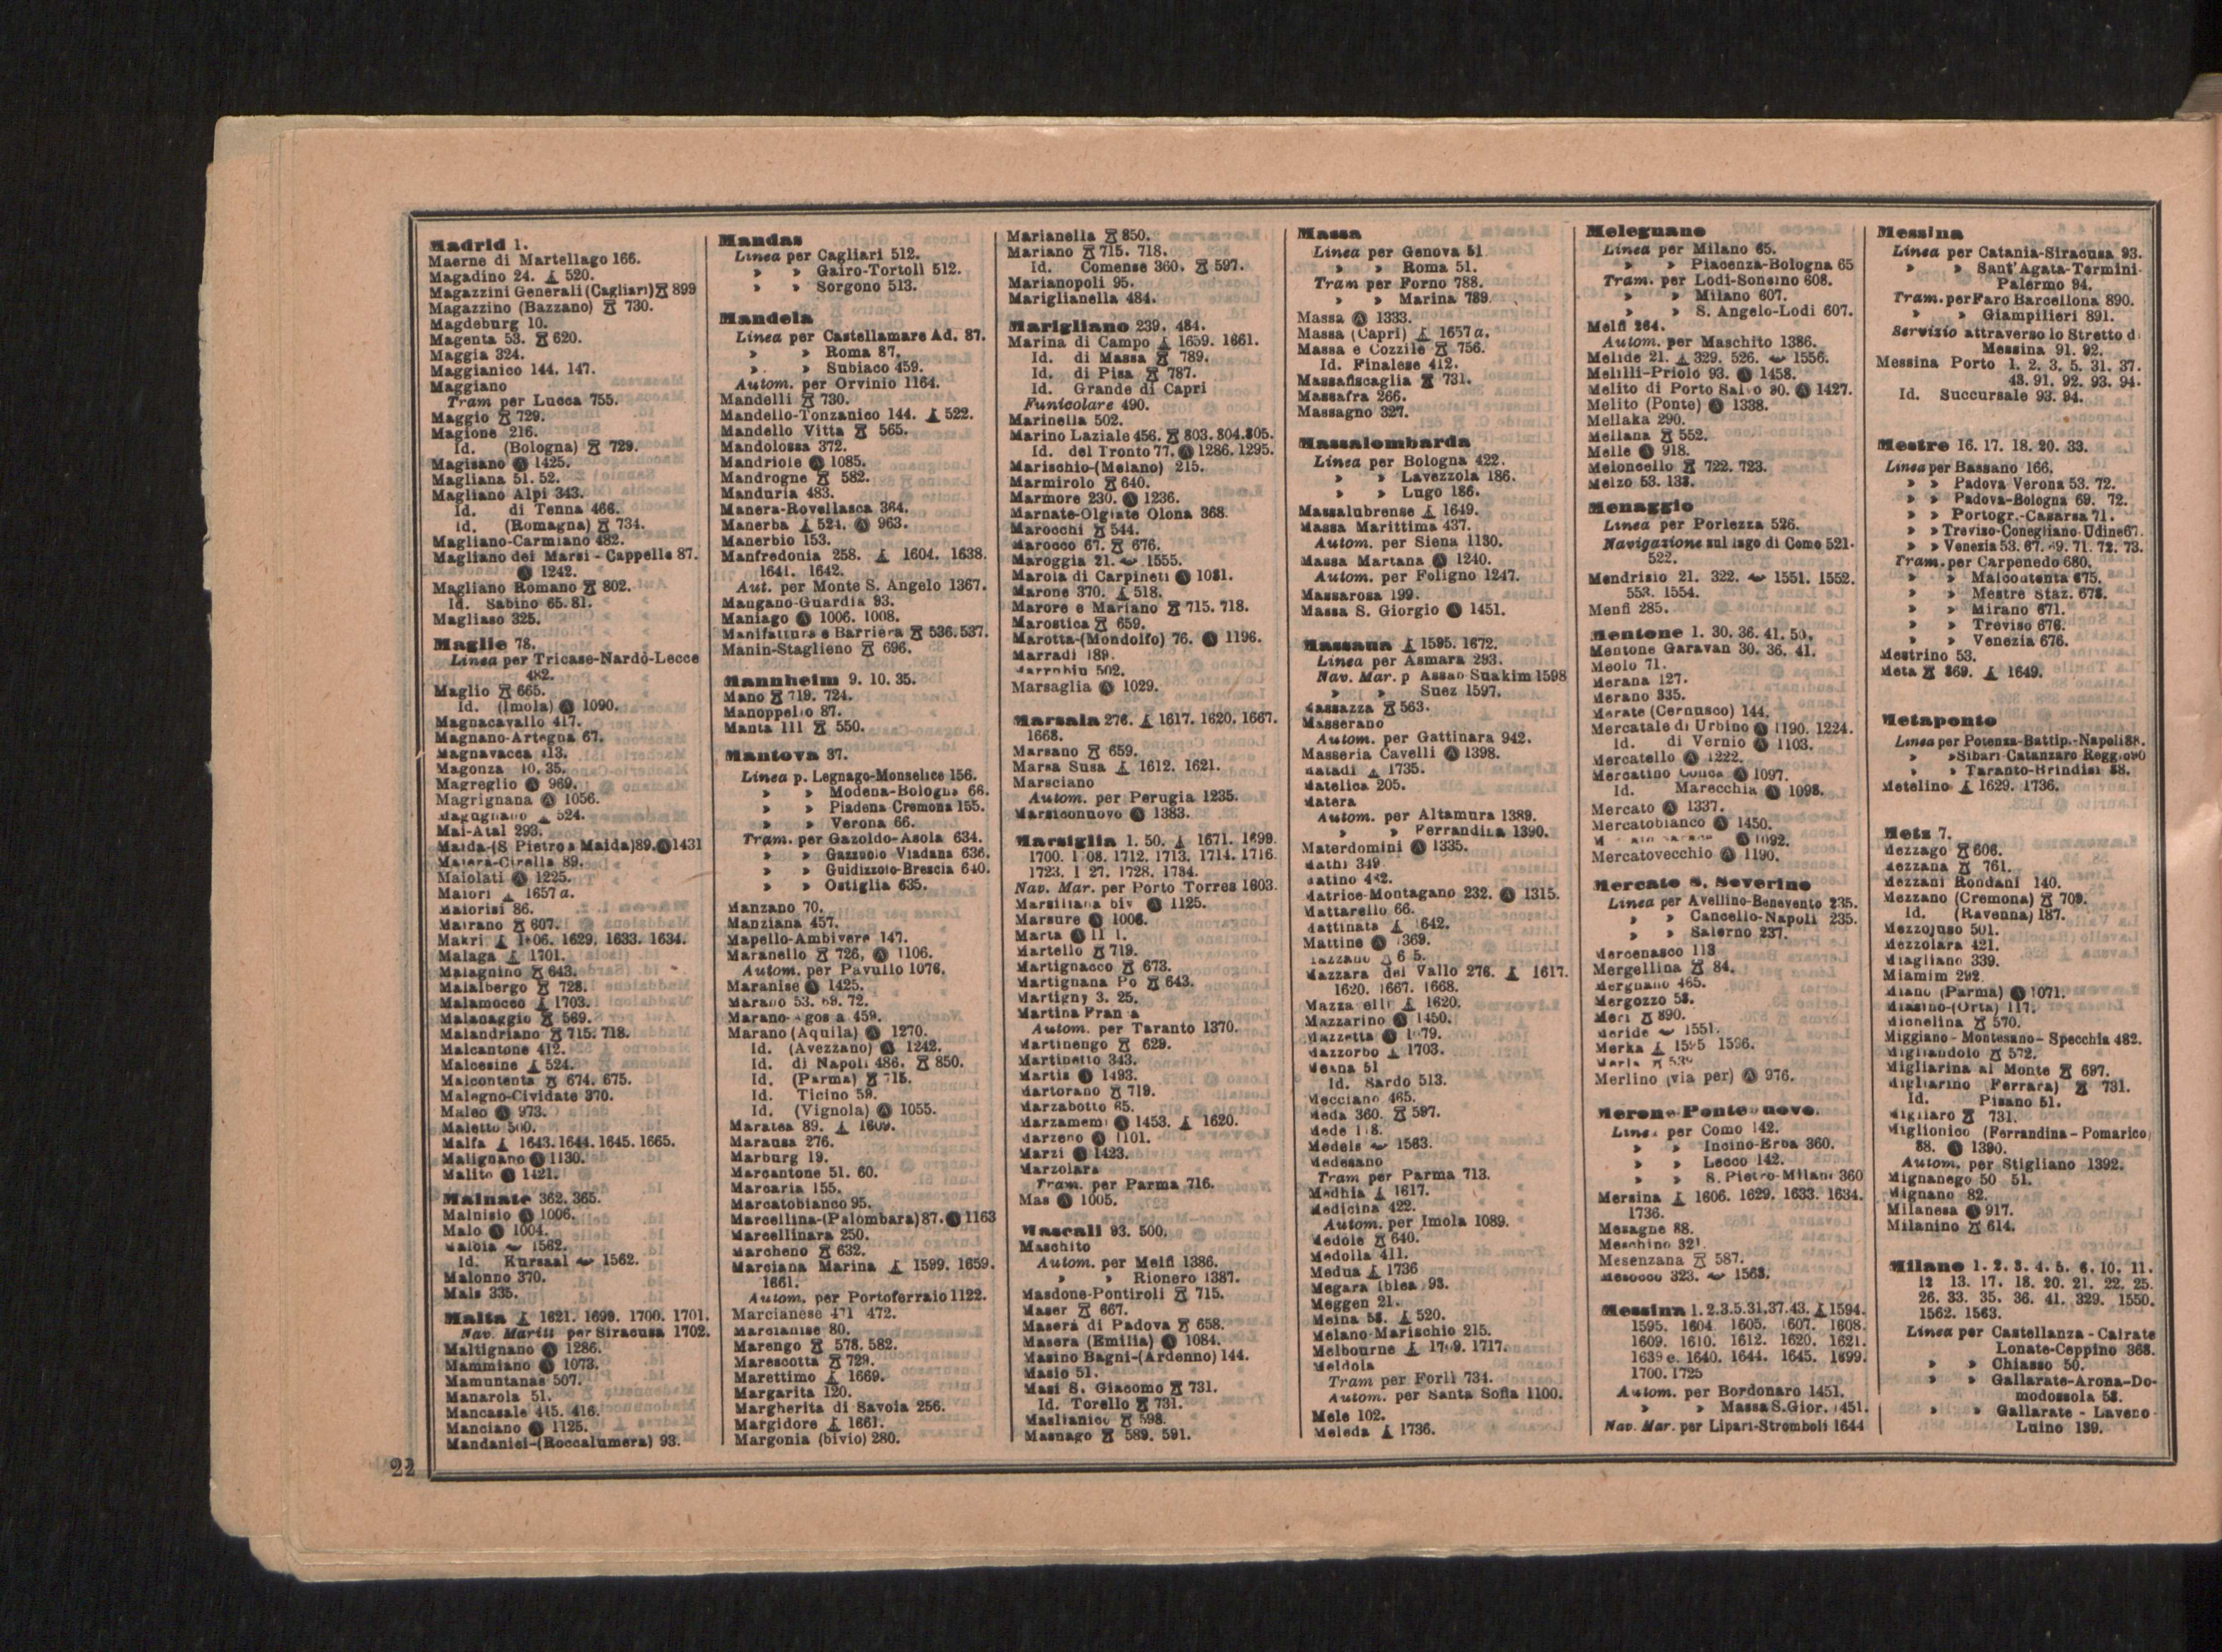 Madrid 1.
Maerne di Martellago 166.
Magadino 24. 520.
Magazzini Generali (Cagliari) 899
Magazzino (Bazzano) 730.
Magdeburg 10.
Magenta 53. 620.
Maggia 324.
Maggianico 144. 147.
Maggiano
Tram per Lucca 755.
Maggio 729.
Magione 216.
Id. (Bologna) 729.
Magisano A 1425.
Magliana 51. 52.
Magliano Alpi 343.
Id. di Tenna 466.
Id. (Romagna) 734.
Magliano-Carmiano 482.
Magliano dei Marsi - Cappelle 87.
A 1242.
Magliano Romano 802.
Id. Sabino 65. 81.
Magliaso 325.
Maglie 78.
Linea per Tricase-Nardò-Lecce
482.
Maglio 665.
Id. (Imola) A 1090.
Magnacavallo 417.
Magnano-Artegna 67.
Magnavacca 413.
Magonza 10. 35.
Magreglio A 969.
Magrignana A 1056.
Magugnano 524.
Mai-Atal 293.
Maida-(S Pietro a Maida) 89. A 1431
Maierà-Cirella 89.
Maiolati A 1225.
Maiori 1657 a.
Maiorisi 86.
Mairano 607.
Makri 1606. 1629. 1633. 1634.
Malaga 1701.
Malagnino 643.
Malalbergo 728.
Malamocco 1703.
Malanaggio 569.
Malandriano 715. 718.
Malcantone 412.
Malcesine 524.
Malcontenta 674. 675.
Malegno-Cividate 370.
Maleo A 973.
Maletto 500.
Malfa 1643. 1644. 1645. 1665.
Malignano A 1130.
Malito A 1421.
Malnate 362. 365.
Malnisio A 1006.
Malo A 1004.
Maloia 1562.
Id. Kursaal 1562.
Malonno 370.
Mals 335.
Malta 1621. 1699. 1700. 1701.
Nav. Maritt per Siracusa 1702.
Maltignano A 1286.
Mammiano A 1073.
Mamuntanas 507.
Manarola 51.
Mancasale 415. 416.
Manciano A 1125.
Mandanici-(Roccalumera) 93.
Mandas
Linea per Cagliari 512.
» » Gairo-Tortolì 512.
» » Sorgono 513.
Mandela
Linea per Castellamare Ad. 87.
» » Roma 87.
» » Subiaco 459.
Autom. per Orvinio 1164.
Mandelli 730.
Mandello-Tonzanico 144. 522.
Mandello Vitta 565.
Mandolossa 372.
Mandriole A 1085.
Mandrogne 582.
Manduria 483.
Manera-Rovellasca 364.
Manerba 524. A 963.
Manerbio 153.
Manfredonia 258. 1604. 1638.
1641. 1642.
Aut. per Monte S. Angelo 1367.
Mangano-Guardia 93.
Maniago A 1006. 1008.
Manifattura e Barriera 536. 537.
Manin-Staglieno 696.
Mannheim 9. 10. 35.
Mano 719. 724.
Manoppello 87.
Manta 111 550.
Mantova 37.
Linea p. Legnago-Monselice 156.
» » Modena-Bologna 66.
» » Piadena Cremona 155.
» » Verona 66.
Tram. per Gazoldo-Asola 634.
» » Gazzuolo Viadana 636.
» » Guidizzolo-Brescia 640.
» » Ostiglia 635.
Manzano 70.
Manziana 457.
Mapello-Ambivere 147.
Maranello 726, A 1106.
Autom. per Pavullo 1076.
Maranise A 1425.
Marano 53. 69. 72.
Marano-Agosta 459.
Marano (Aquila) A 1270.
Id. (Avezzano) A 1242.
Id. di Napoli 486. 850.
Id. (Parma) 715.
Id. Ticino 59.
Id. (Vignola) A 1055.
Maratea 89. 1609.
Marausa 276.
Marburg 19.
Marcantone 51. 60.
Marcaria 155.
Marcatobianco 95.
Marcellina-(Palombara) 87. A 1163
Marcellinara 250.
Marcheno 632.
Marciana Marina 1599. 1659.
1661.
Autom. per Portoferraio 1122.
Marcianese 471 472.
Marcianise 80.
Marengo 578. 582.
Marescotta 729.
Marettimo 1669.
Margarita 120.
Margherita di Savoia 256.
Margidore 1661.
Margonia (bivio) 280.
Marianella 850.
Mariano 715. 718.
Id. Comense 360. 597.
Marianopoli 95.
Mariglianella 484.
Marigliano 239. 484.
Marina di Campo 1659. 1661.
Id. di Massa 789.
Id. di Pisa 787.
Id. Grande di Capri
Funicolare 490.
Marinella 502.
Marino Laziale 456. 803. 804. 805.
Id. del Tronto 77. A 1286. 1295.
Marischio-(Melano) 215.
Marmirolo 640.
Marmore 230. A 1236.
Marnate-Olgiate Olona 368.
Marocchi 544.
Marocco 67. 676.
Maroggia 21. 1555.
Marola di Carpineti A 1081.
Marone 370. 518.
Marore e Mariano 715. 718.
Marostica 659.
Marotta-(Mondolfo) 76. A 1196.
Marradi 189.
502.
Marsaglia A 1029.
Marsala 276. 1617. 1620. 1667.
1668.
Marsano 659.
Marsa Susa 1612. 1621.
Marsciano
Autom. per Perugia 1235.
Marsiconuovo A 1383.
Marsiglia 1. 50. 1671. 1699.
1700. 1712. 1713. 1714. 1716.
1723. 1728. 1734.
Nav. Mar. per Porto Torres 1603.
Marsiliana biv A 1125.
Marsure A 1006.
Marta A
Martello 719.
Martignacco 673.
Martignana Po 643.
Martigny 3. 25.
Martina Franca
Autom. per Taranto 1370.
Martinengo 629.
Martinetto 343.
Martis A 1493.
Martorano 719.
Marzabotto 65.
Marzamemi A 1453. 1620.
Marzeno A 1101.
Marzi A 1423.
Marzolara
Tram. per Parma 716.
Mas A 1005.
Mascali 93. 500.
Maschito
Autom. per Melfi 1386.
» » Rionero 1387.
Masdone-Pontiroli 715.
Maser 667.
Maserà di Padova 658.
Masera (Emilia) A 1084.
Masino Bagni-(Ardenno) 144.
Masio 51.
Masi S. Giacomo 731.
Id. Torello 731.
Maslianico 598.
Masnago 589. 591.
Massa
Linea per Genova 51
» » Roma 51.
Tram per Forno 788.
» » Marina 789.
Massa A 1333.
Massa (Capri) 1657 a.
Massa e Cozzile 756.
Id. Finalese 412.
Massafiscaglia 731.
Massafra 266.
Massagno 327.
Massalombarda
Linea per Bologna 422.
» » Lavezzola 186.
» » Lugo 186.
Massalubrense 1649.
Massa Marittima 437.
Autom. per Siena 1130.
Massa Martana A 1240.
Autom. per Foligno 1247.
Massarosa 199.
Massa S. Giorgio A 1451.
Massaua 1595. 1672.
Linea per Asmara 293.
Nav. Mar. p Assab Suakim 1598
» » Suez 1597.
Massazza 563.
Masserano
Autom. per Gattinara 942.
Masseria Cavelli A 1398.
Matadi 1735.
Matelica 205.
Matera
Autom. per Altamura 1389.
» » Ferrandina 1390.
Materdomini A 1335.
Mathi 349
Matino 482.
Matrice-Montagano 232. A 1315.
Mattarello 66.
Mattinata 1642.
Mattine A 1369.
Mazzano
Mazzara del Vallo 276. 1617.
1620. 1667. 1668.
Mazzarelli 1620.
Mazzarino A 1450.
Mazzetta A 1079.
Mazzorbo 1703.
Meana 51
Id. Sardo 513.
Mecciano 465.
Meda 360. 597.
Mede 118.
Medels 1563.
Medesano
Tram per Parma 713.
Medhia 1617.
Medicina 422.
Autom. per Imola 1089.
Medole 640.
Medolla 411.
Medua 1736
Megara Iblea 93.
Meggen 21.
Meina 53. 520.
Melano-Marischio 215.
Melbourne 1709. 1717.
Meldola
Tram per Forlì 734.
Autom. per Santa Sofia 1100.
Mele 102.
Meleda 1736.
Melegnano
Linea per Milano 65.
» » Piacenza-Bologna 65
Tram. per Lodi-Soncino 608.
» » Milano 607.
» » S. Angelo-Lodi 607.
Melfi 264.
Autom. per Maschito 1386.
Melide 21. 329. 526. 1556.
Melilli-Priolo 93. A 1458.
Melito di Porto Salvo 90. A 1427.
Melito (Ponte) A 1338.
Mellaka 290.
Mellana 552.
Melle A 918.
Meloncello 722. 723.
Melzo 53. 138.
Menaggio
Linea per Porlezza 526.
Navigazione sul lago di Como 521-
522.
Mendrisio 21. 322. 1551. 1552.
553. 1554.
Menfi 285.
Mentone 1. 30. 36. 41. 50.
Mentone Garavan 30. 36. 41.
Meolo 71.
Merana 127.
Merano 335.
Merate (Cernusco) 144.
Mercatale di Urbino A 1190. 1224.
Id. di Vernio A 1103.
Mercatello A 1222.
Mercatino Conca A 1097.
Id. Marecchia A 1098.
Mercato A 1337.
Mercatobianco A 1450.
A 1092.
Mercatovecchio A 1190.
Mercato S. Severino
Linea per Avellino-Benevento 235.
» » Cancello-Napoli 235.
» » Salerno 237.
Mercenasco 113
Mergellina 84.
Mergnano 465.
Mergozzo 58.
Meri 890.
Meride 1551.
Merka 1595 1596.
Merlino (via per) A 976.
Merone Ponte nuovo.
Linea per Como 142.
» » Incino-Erba 360.
» » Lecco 142.
» » S. Pietro-Milano 360
Mersina 1606. 1629. 1633. 1634.
1736.
Mesagne 88.
Meschino 321.
Mesenzana 587.
Mesocco 323. 1563.
Messina 1. 2. 3. 5. 31. 37. 43. 1594.
1595. 1604. 1605. 1607. 1608.
1609. 1610. 1612. 1620. 1621.
1639 e. 1640. 1644. 1645. 1699.
1700. 1725
Autom. per Bordonaro 1451.
» » Massa S. Gior. 1451.
Nav. Mar. per Lipari-Stromboli 1644
Messina
Linea per Catania-Siracusa 93.
» » Sant'Agata-Termini-
Palermo 94.
Tram. per Faro Barcellona 890.
» » Giampilieri 891.
Servizio attraverso lo Stretto di
Messina 91. 92.
Messina Porto 1. 2. 3. 5. 31. 37.
43. 91. 92. 93. 94.
Id. Succursale 93. 94.
Mestre 16. 17. 18. 20. 33.
Linea per Bassano 166.
» » Padova Verona 53. 72.
» » Padova-Bologna 69. 72.
» » Portogr.-Casarsa 71.
» » Treviso-Conegliano-Udine 67.
» » Venezia 53. 67. 69. 71. 72. 73.
Tram. per Carpenedo 680.
» » Malcontenta 675.
» » Mestre Staz. 678.
» » Mirano 671.
» » Treviso 676.
» » Venezia 676.
Mestrino 53.
Meta 869. 1649.
Metaponto
Linea per Potenza-Battip.-Napoli 88.
» » Sibari Catanzaro Reggio 90
» » Taranto-Brindisi 88.
Metelino 1629. 1736.
Metz 7.
Mezzago 606.
Mezzana 761.
Mezzani Rondani 140.
Mezzano (Cremona) 709.
Id. (Ravenna) 187.
Mezzojuso 501.
Mezzolara 421.
Miagliano 339.
Miamim 292
Miano (Parma) A 1071.
Miasino-(Orta) 117.
Michelina 570.
Miggiano - Montesano - Specchia 482.
Migliandolo 572.
Migliarina al Monte 697.
Migliarino (Ferrara) 731.
Id. Pisano 51.
Migliaro 731.
Miglionico (Ferrandina - Pomarico)
88. A 1390.
Autom. per Stigliano 1392.
Mignanego 50 51.
Mignano 82.
Milanesa A 917.
Milanino 614.
Milano 1. 2. 3. 4. 5. 6. 10. 11.
12 13. 17. 18. 20. 21. 22. 25.
26. 33. 35. 36. 41. 329. 1550.
1562. 1563.
Linea per Castellanza - Cairate
Lonate-Ceppino 368.
» » Chiasso 50.
» » Gallarate-Arona-Do-
modossola 58.
» » Gallarate - Laveno -
Luino 139.
22